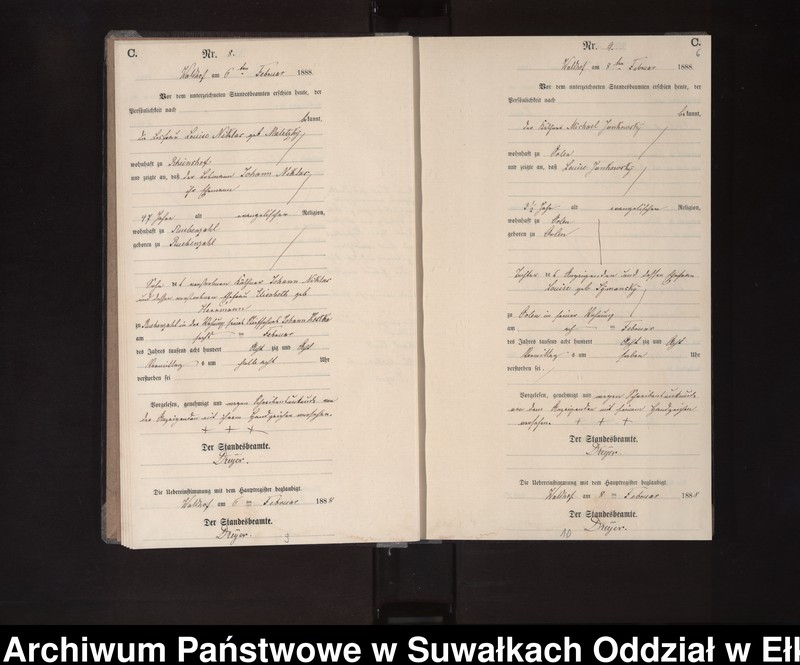 C.
Nr. 8.
Waldorf am 6ten Februar 1888.
Vor dem unterzeichneten Standesbeamten erschien heute, der
Persönlichkeit nach
bekannt,
die Losfrau Louise Niklas geb Maletzky
wohnhaft zu Rhienshof
und zeigte an, daß der Losmann Johann Niklas,
ihr Ehemann
47 Jahre alt evangelischen Religion,
wohnhaft zu Rübenzahl
geboren zu Rübenzahl
Sohn des verstorbenen Käthner Johann Niklas
und dessen verstorbenen Ehefrau Elisabeth geb
Herrmann
zu Rübenzahl in der Wohnung seines Johann
am Februar
des Jahres tausend acht hundert Acht zig und Acht
Vormittags um halb acht Uhr
verstorben sei
Vorgelesen, genehmigt und wegen Schreibensunkunde von
der Anzeigenden mit ihrem Handzeichen versehen.
+ + +
Der Standesbeamte.
Dreyer.
Die Uebereinstimmung mit dem Hauptregister beglaubigt.
Waldorf am 6ten Februar 1888
Der Standesbeamte.
Dreyer.
C.
6
Nr. 9.
Waldorf am 8ten Februar 1888.
Vor dem unterzeichneten Standesbeamten erschien heute, der
Persönlichkeit nach
bekannt,
der Käthner Michael Jankowsky
wohnhaft zu
und zeigte an, daß Louise Jankowsky
2½ Jahr alt evangelischen Religion,
wohnhaft zu
geboren zu
Tochter des Anzeigenden und dessen Ehefrau
Louise geb Szymansky
zu in seiner Wohnung
am ten Februar
des Jahres tausend acht hundert Acht zig und Acht
Vormittags um sieben Uhr
verstorben sei.
Vorgelesen, genehmigt und wegen Schreibensunkunde
von dem Anzeigenden mit seinem Handzeichen
versehen + + +
Der Standesbeamte.
Dreyer.
Die Uebereinstimmung mit dem Hauptregister beglaubigt.
Waldorf am 8ten Februar 1888
Der Standesbeamte.
Dreyer.
10
Archiwum Państwowe w Suwałkach Oddział w Ełk